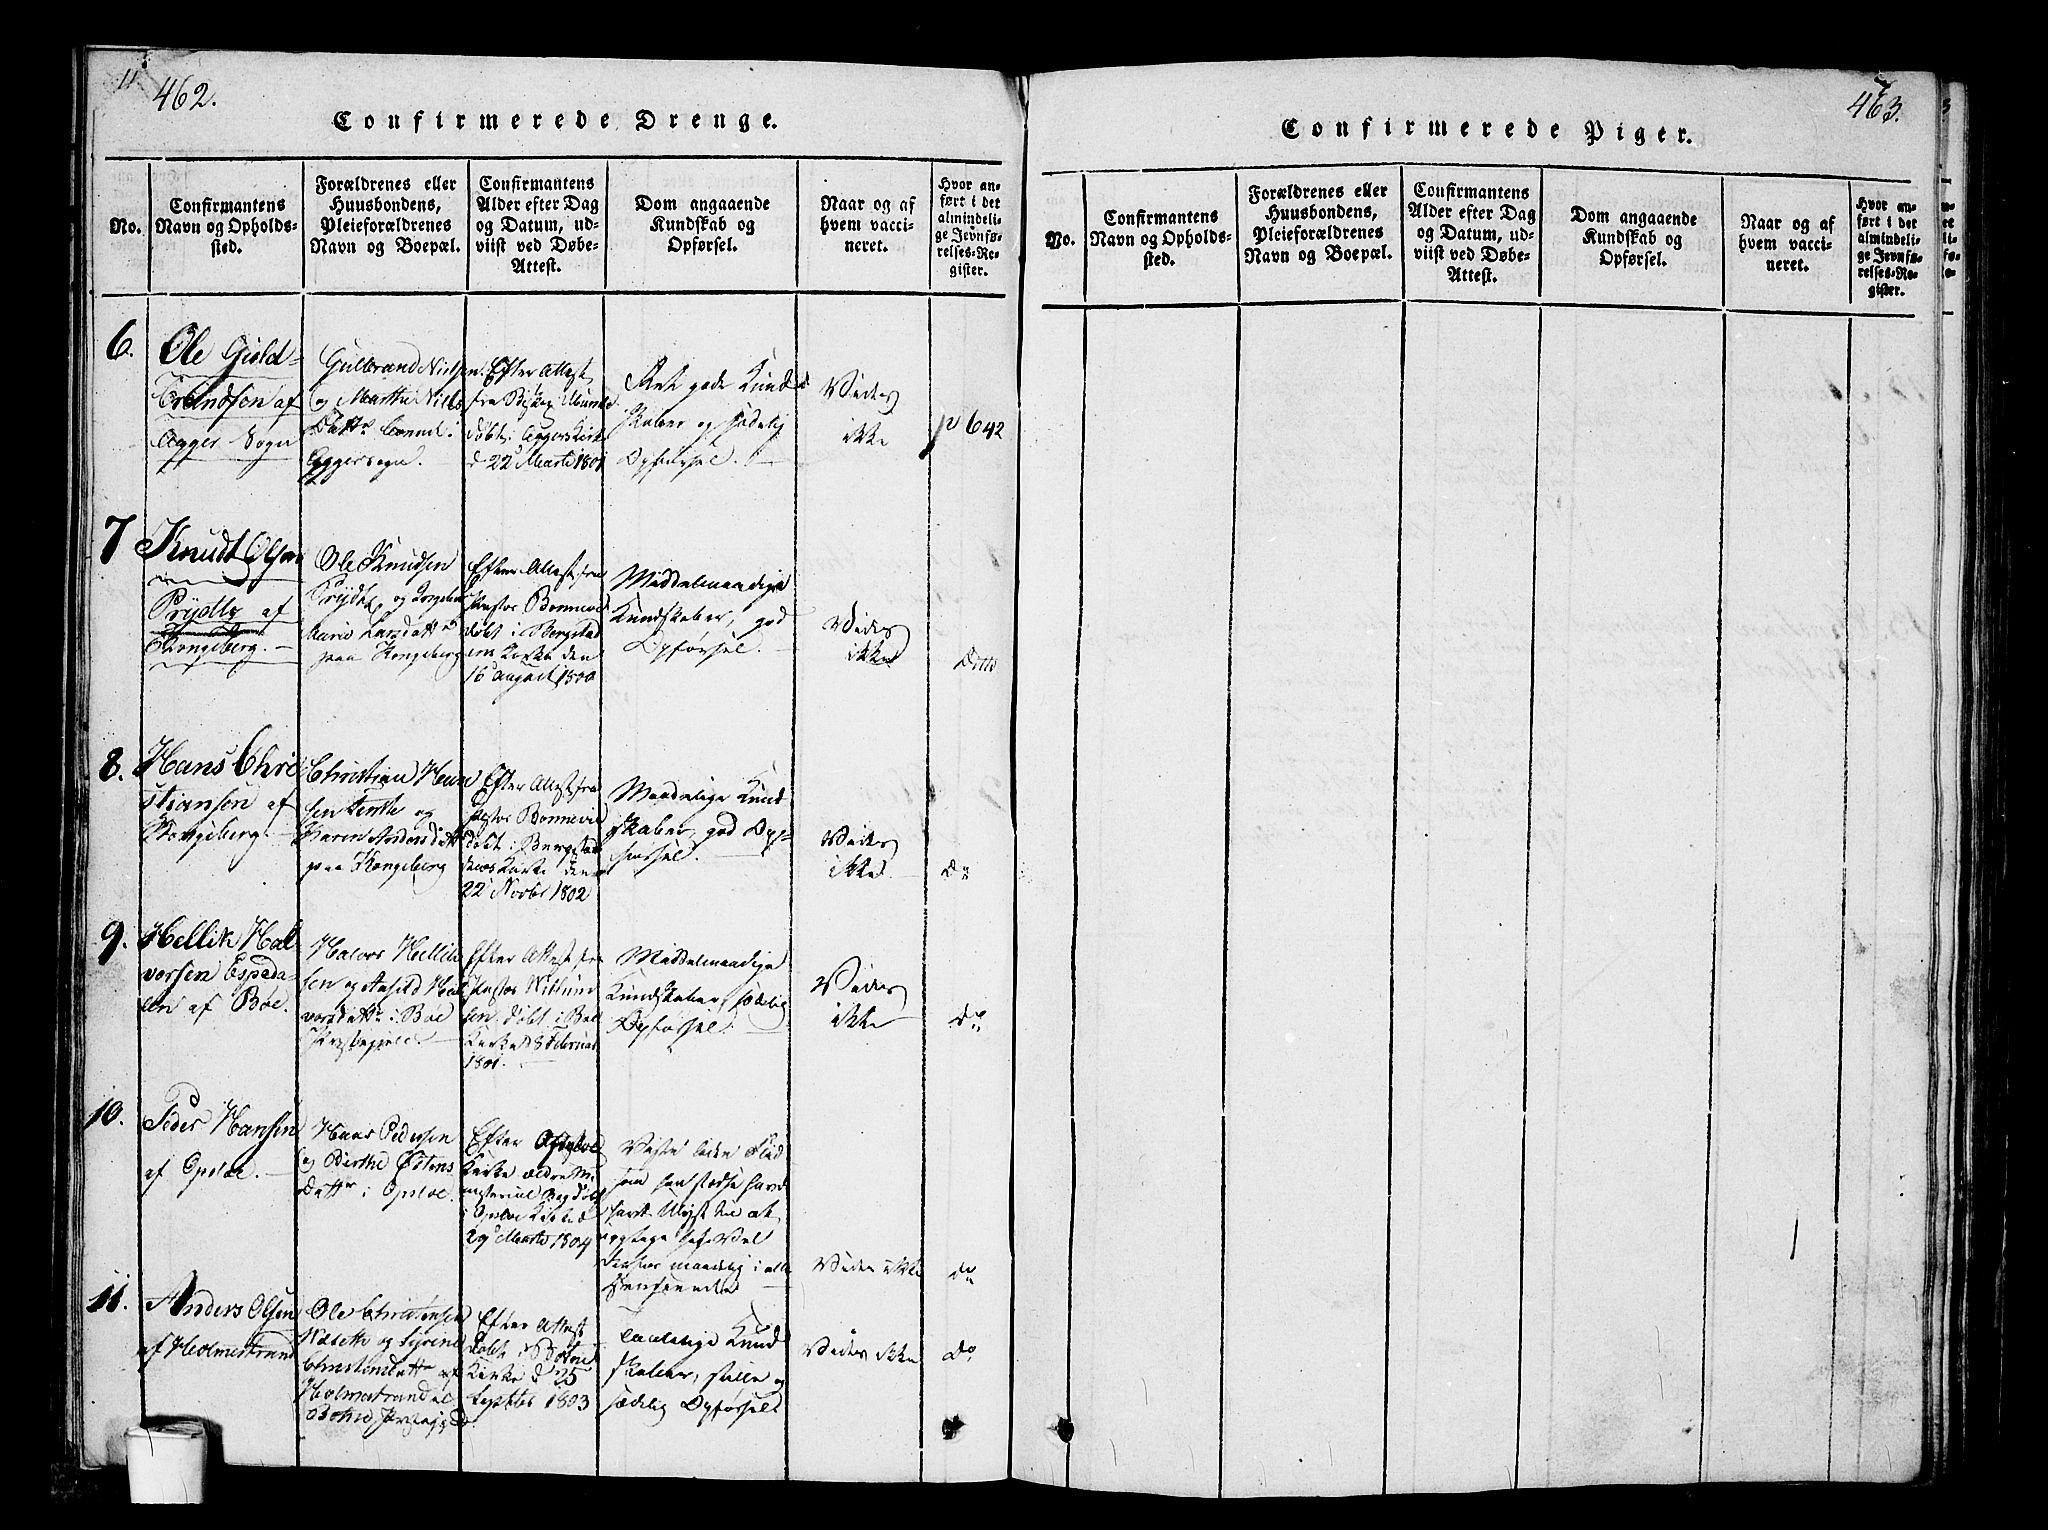 462.
Confirmerede Drenge.
No.
Confirmantens
Navn og Opholds-
sted.
Forældrenes eller
Huusbondens,
Pleieforældrenes
Navn og Boepæl.
Confirmantens
Alder efter Dag
og Datum, ud-
viist ved Døbe-
Attest.
Dom angaaende
Kundskab og
Opførsel.
Naar og af
hvem vacci-
neret.
Hvor an-
ført i det
almindeli-
ge Jevnfø-
relses-Re-
gister.
6.
Ole Guld-
brandsøn af
Agger Sogn
Gulbrand Nielsen
og Marthe Niels
Dattr
Aggersogn.
Efter Attest
fra
døbt i Aggers Kirke
d 22 Marti 1801
gode Kund
skaber og sædelig
Opførsel.
Vides
ikke
p 642
7
Knudt Olsen
Prydtz af
Kongsberg.
Ole Knudsen
Prydtz og
Marie Larsdattr
paa Kongsberg
Efter Attest fra
Pastor Bonnevie
døbt i Bergstad
ens Kirke den
16 august 1800
Middelmaadige
Kundskaber, god
Opførsel.
Vides
ikke
Ditto
8.
Hans Chri
stiansøn af
Kongsberg
Christian Han
sen og
Karen Andersdatt
paa Kongsberg
Efter Attest fra
Pastor Bonnevie
døbt i Bergstad
ens Kirke den
22 Novbr 1802
Maadelige Kund
skaber, god Op-
førsel.
Vides
ikke
Do
9.
Hellik Hal
vorsen Espeda-
len af Bøe.
Halvor Hellik
sen og Aasild Hal
vorsdattr i Bøe
Præstegjeld.
Efter Attest fra
Pastor
sen døbt i Bøe
Kirke d 8 Februar
1801.
Middelmaadige
Kundskaber, sædelig
Opførsel.
Vides
ikke
Do
10.
Peder Hansen
af Opsloe.
Hans Pedersen
og Berthe Østens
Dattr i Opsloe.
Efter Opsloe
Kirke ældre Mi
nisterial Bog døbt
i Opsloe Kirke d
29 Marti 1804
maadelig i alle
Henseender
Vides ikke
Do
11.
Anders Olsen
af Holmestrand
Ole Christensen
og
Christensdattr af
Holmestrand
Botne Præstegjeld
Efter Attest
døbt i Botne
Kirke d 25
Septbr 1803
Kund
skaber, stille og
sædelig Opførsel
Vides ikke
Do
463.
Confirmerede Piger.
No.
Confirmantens
Navn og Opholds-
sted.
Forældrenes eller
Huusbondens,
Pleieforældrenes
Navn og Boepæl.
Confirmantens
Alder efter Dag
og Datum, ud-
viist ved Døbe-
Attest.
Dom angaaende
Kundskab og
Opførsel.
Naar og af
hvem vacci-
neret.
Hvor an-
ført i det
almindeli-
ge Jevnfø-
relses-Re-
gister.